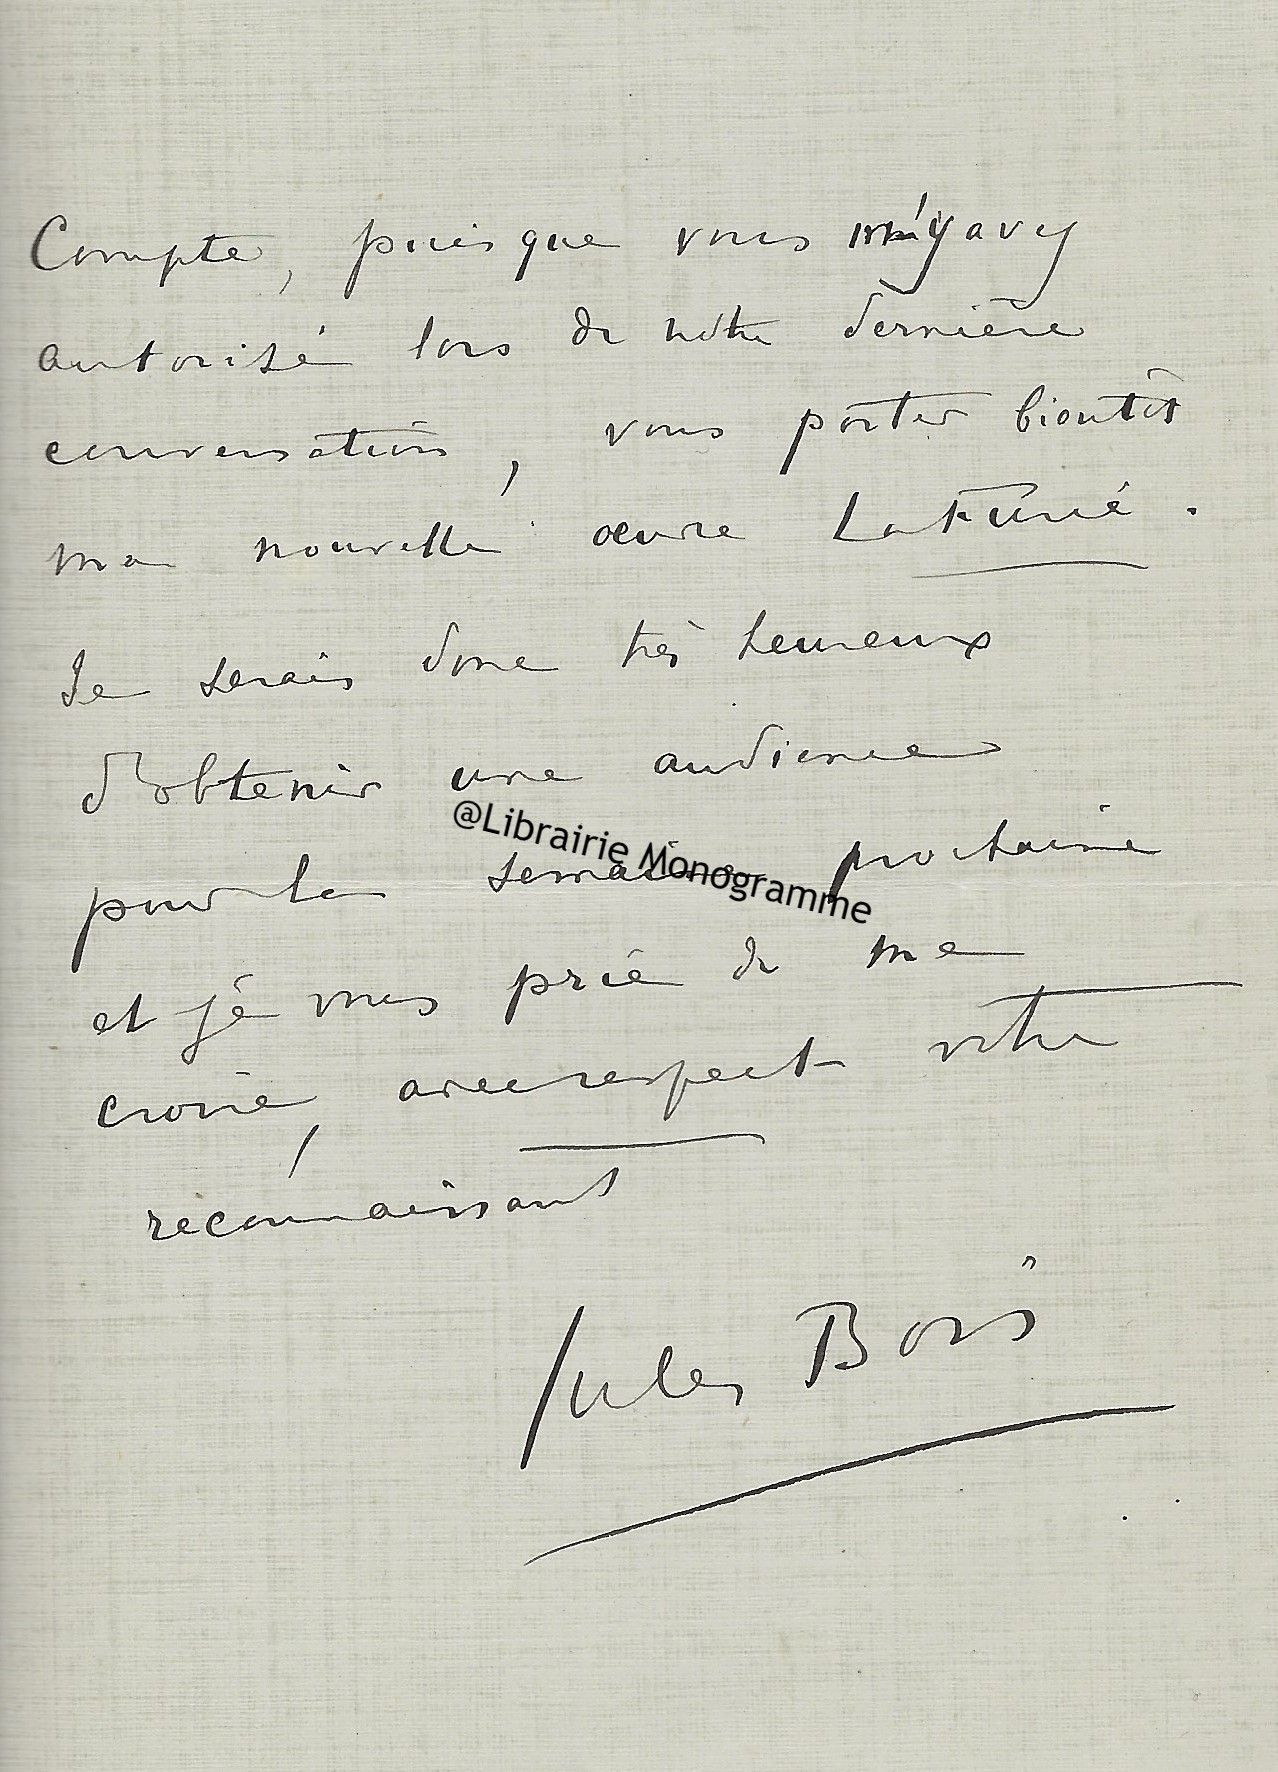 Compte, puisque vous m'y avez
autorisé lors de notre dernière
conversation, vous porter bientôt
ma nouvelle œuvre La Furie.
Je serais donc très heureux
d'obtenir une audience
@Librairie Monogramme
pour la semaine prochaine
et je vous prie de me
croire, avec respect votre
reconnaissant
Jules Bois